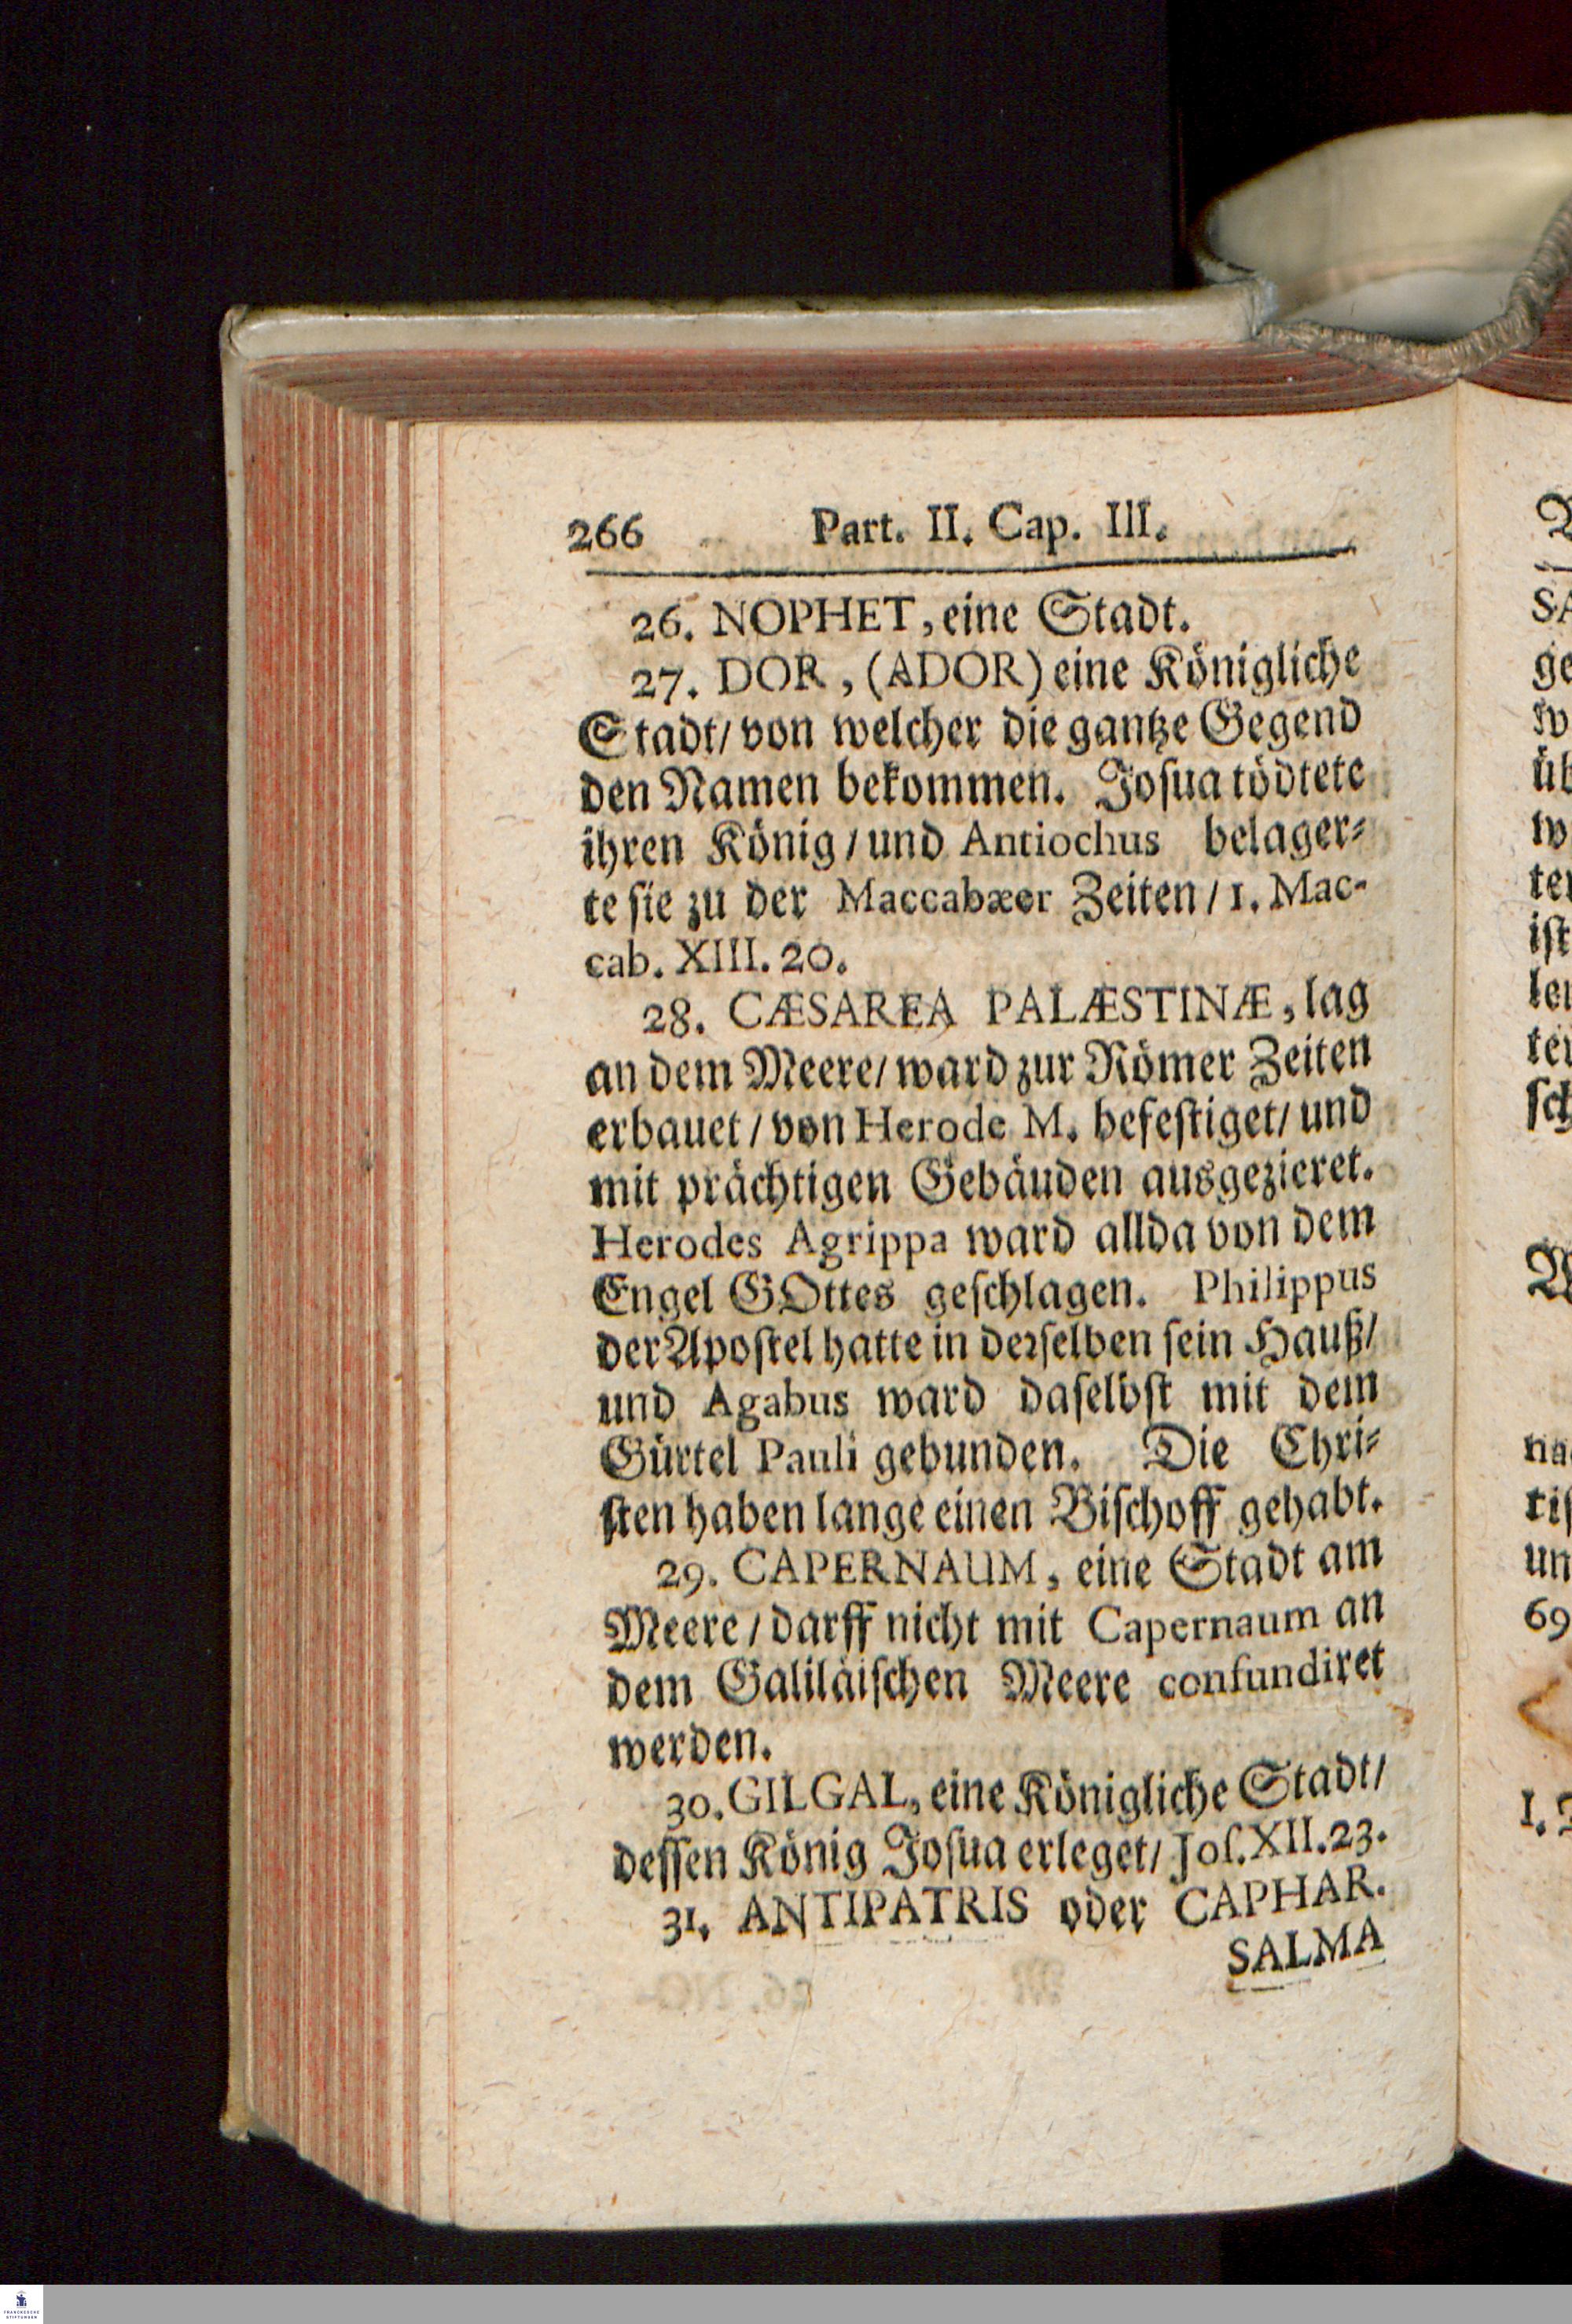 266 Part. II. Cap. III.
26. NOPHET, eine Stadt.
27. DOR, (ADOR) eine Königliche
Stadt/ von welcher die gantze Gegend
den Namen bekommen. Joſua tödtete
ihren König/ und Antiochus belager⸗
te ſie zu der Maccabæer Zeiten/ 1. Mac-
cab. XIII. 20.
28. CÆSAREA PALÆSTINÆ, lag
an dem Meere/ ward zur Römer Zeiten
erbauet/ von Herode M. befeſtiget/ und
mit prächtigen Gebäuden ausgezieret.
Herodes Agrippa ward allda von dem
Engel GOttes geſchlagen. Philippus
der Apoſtel hatte in derſelben ſein Hauß/
und Agabus ward daſelbſt mit dem
Gürtel Pauli gebunden. Die Chri⸗
ſten haben lange einen Biſchoff gehabt.
29. CAPERNAUM, eine Stadt am
Meere/ darff nicht mit Capernaum an
dem Galiläiſchen Meere confundiret
werden.
30. GILGAL, eine Königliche Stadt/
deſſen König Joſua erleget/ Joſ. XII. 23.
31. ANTIPATRIS oder CAPHAR.
SALMA